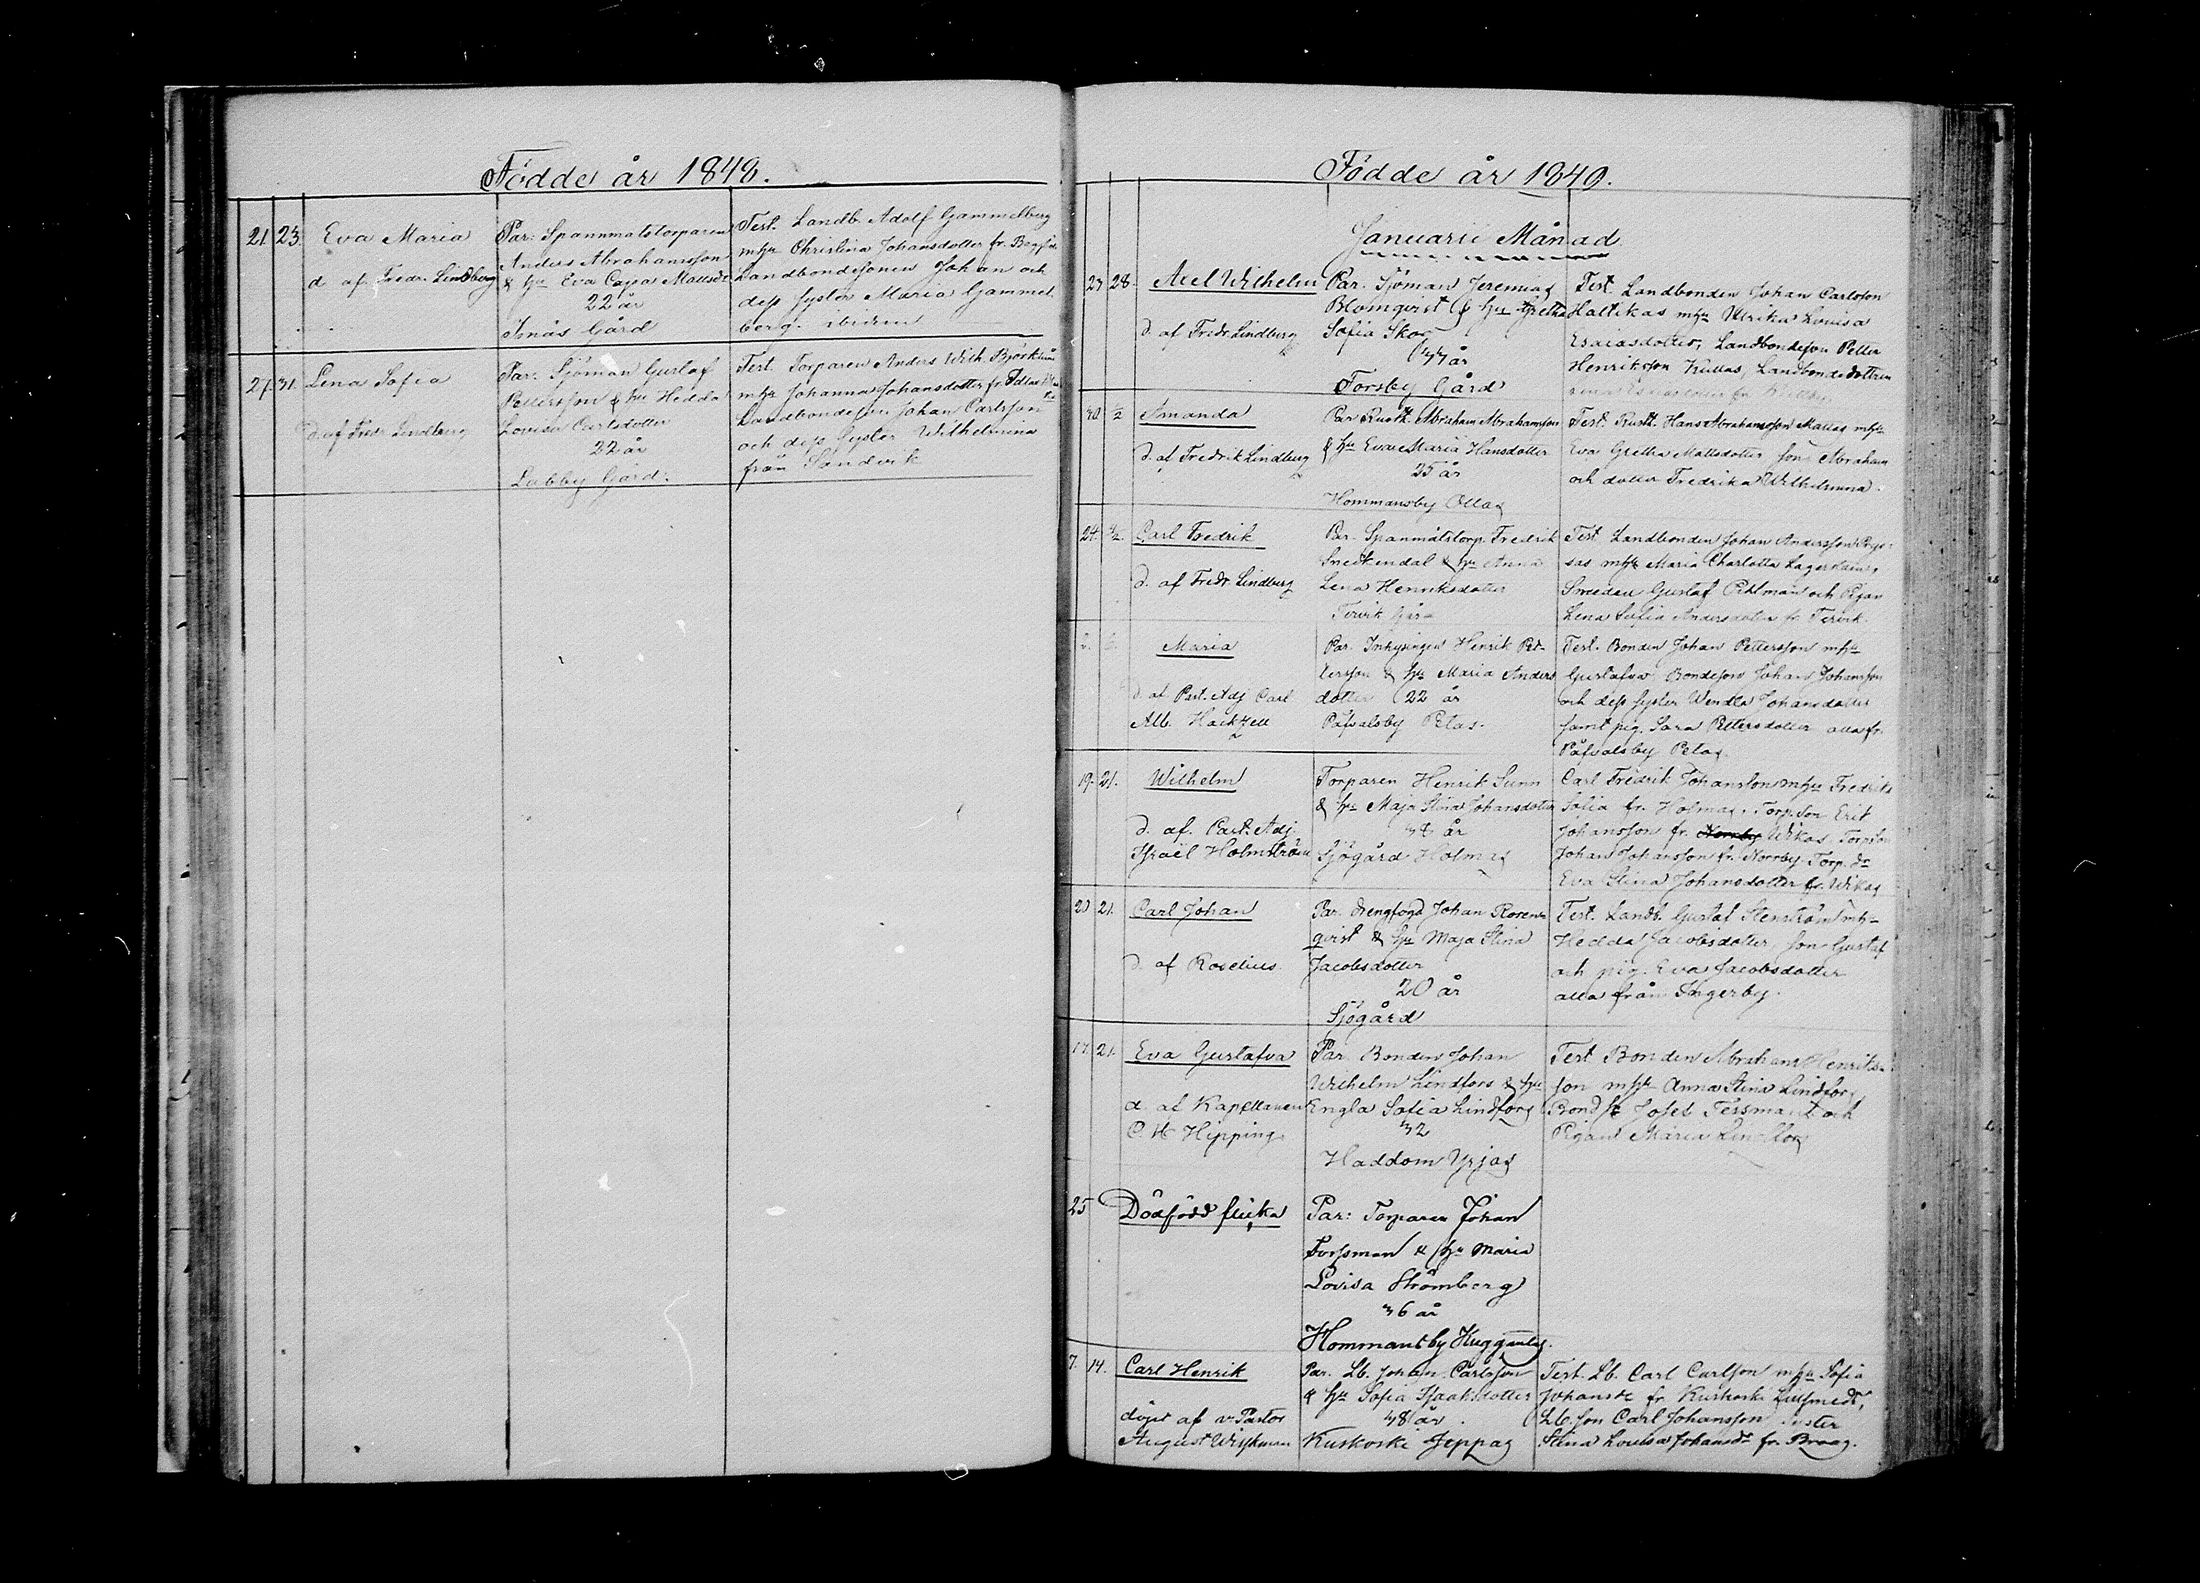 Födde år 1848.
21. 23. Eva Maria
d. af Fredr. Lindberg
Par: Spannmålstorparen
Anders Abrahamsson
& hu Eva Cajsa Mattsdr
22 år
Tmäs Gård
Test. Landb. Adolf Gammelberg
mhu Christina Johansdotter fr.
Landbondesonen Johan och
dess syster Maria Gammel
berg. ibidem
27. 31. Lena Sofia
d. af Fredr. Lindberg
Par: Sjöman Gustaf
Pettersson & hu Hedda
Lovisa Carlsdotter
22 år
Labby Gård.
Test. Torparen Anders Wilh. Björklund
mhu Johanna Johansdotter fr.
Landbondeson Johan Carlsson
och dess syster Wilhelmina
från Sandvik
Födde år 1849.
Januarii Månad
23 28. Axel Wilhelm
d. af Fredr. Lindberg
Par. Sjöman Jeremias
Blomqvist & hu Gretha
Sofia Skog
år
Forsby Gård
Test. Landbonden Johan Carlsson
Hattikas mhu Ulrika Lovisa
Esaiasdotter, Landbondeson Petter
Henriksson Kullas, Landbondedottren
30. Amanda
d. af Fredrik Lindberg
Par Rusth. Abraham Abrahamsson
& hu Eva Maria Hansdotter
25 år
Hommansby Ollas
Test. Rusth. Hans Abrahamsson Mattas mhu
Eva Gretha Mattsdotter son Abraham
och dotter Fredrika Wilhelmina.
24. Carl Fredrik
d. af Fredr. Lindberg
Par. Spanmålstorp. Fredrik
Snedkendal & hu Anna
Lena Henriksdotter
Tervik Gård
Test. Landbonden Johan Andersson
sas mhu Maria Charlotta Lagerstam,
Smeden Gustaf Pihlman och Pigan
Lena Sofia Andersdotter fr. Tervik.
2. Maria
d. af Past. Adj Carl
Alb. Hackzell
Par. Inhysingen Henrik Pet-
tersson & hu Maria Anders
dotter 22 år
Påfvalsby Pelas.
Test. Bonden Johan Pettersson mhu
Gustafva Bondeson Johan Johansson
och dess syster Wendla Johansdotter
samt pig. Sara Pettersdotter alla fr.
Påfvalsby Pelas
19. 21. Wilhelm
d. af. Past. Adj.
Israël Holmström
Torparen Henrik Sunn
& hu Maja Stina Johansdotter
38 år
Sjögård Holmas
Carl Fredrik Johansson mhu Fredrika
Sofia fr. Holmas. Torp.son Erik
Johansson fr. Norrby Wikas Torpson
Johan Johansson fr. Norrby. Torp. dr
Eva Stina Johansdotter fr. Wikas
20 21. Carl Johan
d. af Roselius.
Par. drengfogd Johan Rosen
qvist & hu Maja Stina
Jacobsdotter
20 år
Sjögård
Test. Landb. Gustaf Stenström mhu
Hedda Jacobsdotter, son Gustaf
och pig. Eva Jacobsdotter
alla från Ingerby.
17. 21. Eva Gustafva
d. af Kapellanen
C H Hipping.
Par. Bonden Johan
Wilhelm Lindfors & hu
Engla Sofia Lindfors
32
Haddom Yrjas
Test Bonden Abraham Henriks-
son mhu Anna Stina Lindfors
Bonds. Josef Tessman och
Pigan Maria Lindfors
25 Dödfödd flicka
Par: Torparen Johan
Forssman & hu Maria
Lovisa Strömberg
36 år
Hommansby Huggantas.
7. 14. Carl Henrik
döpt af v Pastor
August Wickman
Par. Lb. Johan Carlsson
& hu Sofia Isaaksdotter
38 år.
Kuskoski Jeppas
Test. Lb. Carl Carlson mhu Sofia
Johansdr fr Kuskoski
Lb.son Carl Johansson syster
Stina Lovisa Johansdr fr. Broas.